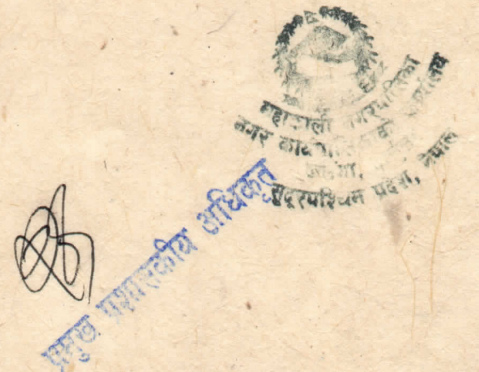 महाकाली नगरपालिका
नगर कार्यपालिकाको कार्यालय
सुदूरपश्चिम प्रदेश, नेपाल
प्रमुख प्रशासकीय अधिकृत